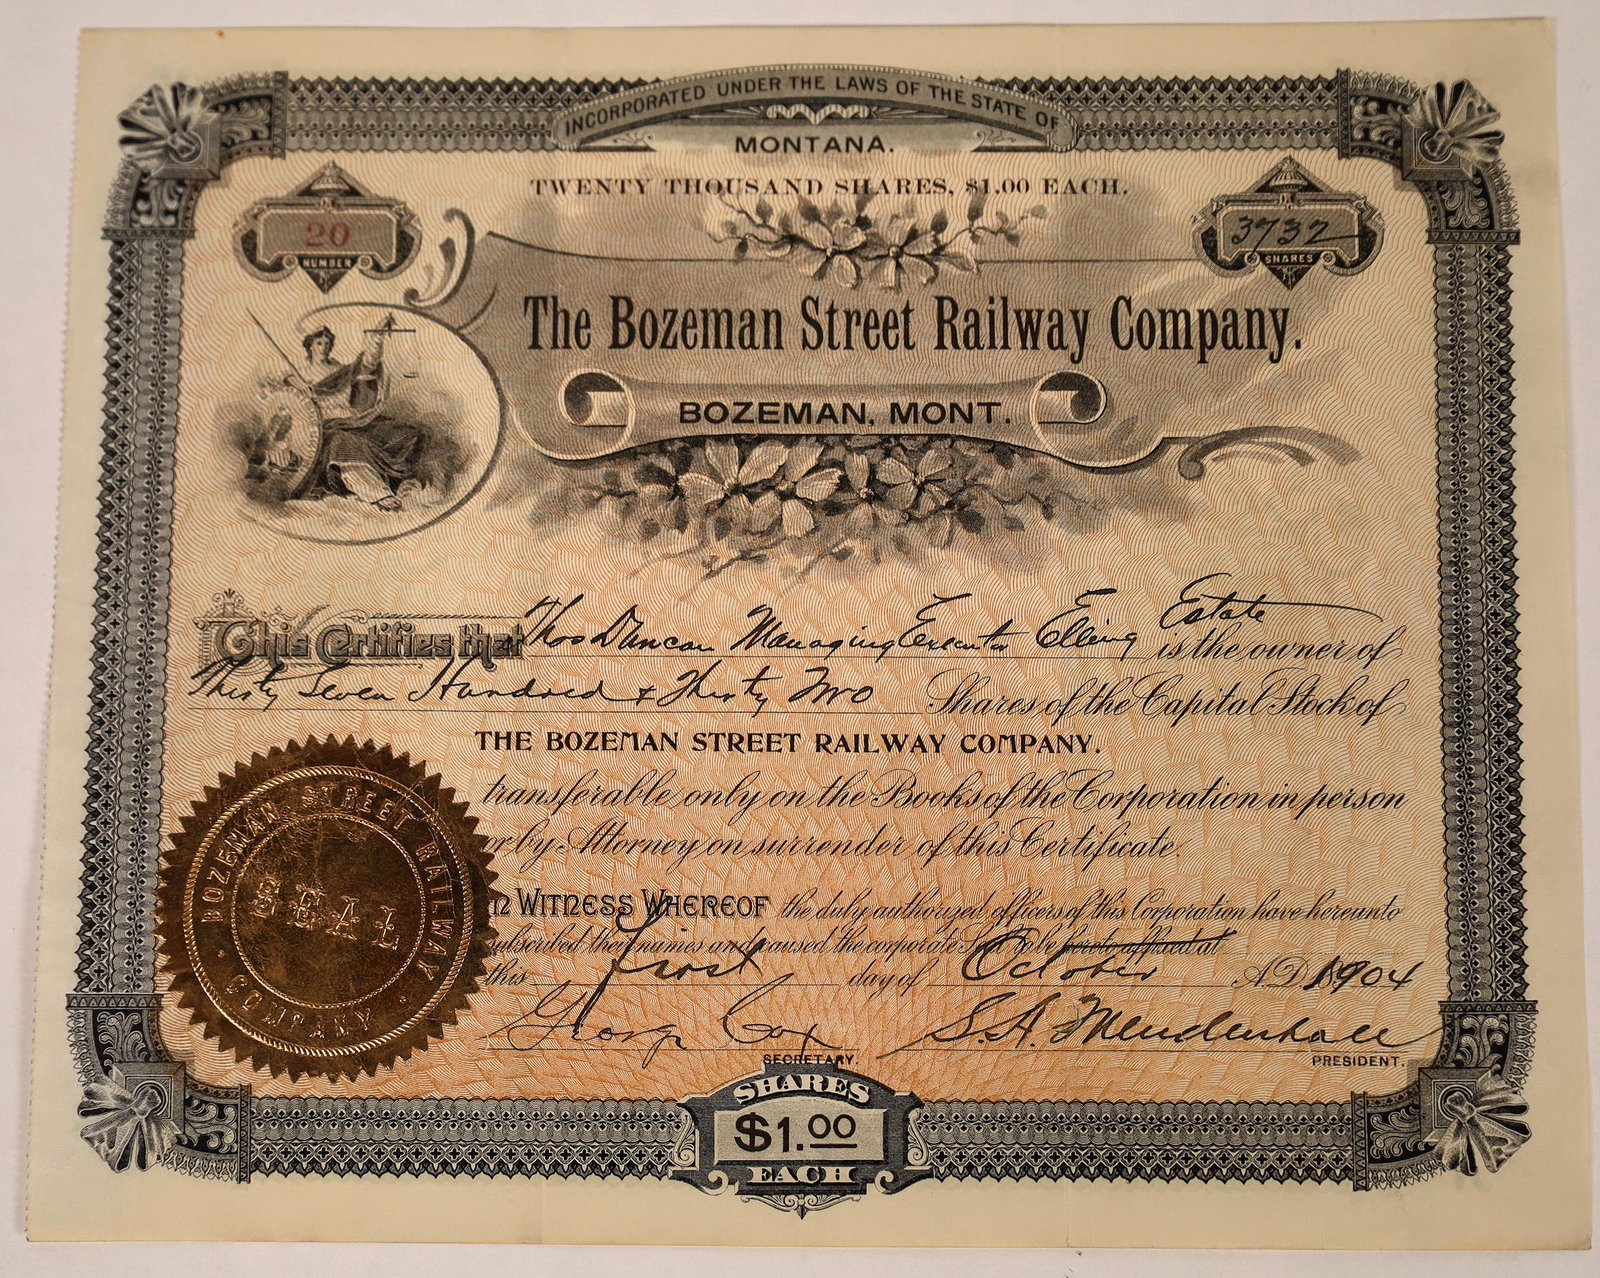 INCORPORATED UNDER THE LAWS OF THE STATE OF
MONTANA.
TWENTY THOUSAND SHARES, $1.00 EACH.
20
NUMBER
3732
SHARES
The Bozeman Street Railway Company.
BOZEMAN, MONT.
This Certifies that Thos Duncan Managing Executor Elling Estate is the owner of
Thirty Seven Hundred & Thirty Two Shares of the Capital Stock of
THE BOZEMAN STREET RAILWAY COMPANY.
transferable only on the Books of the Corporation in person
or by Attorney on surrender of this Certificate.
In Witness Whereof the duly authorized officers of this Corporation have hereunto
subscribed their names and caused the corporate Seal to be hereto affixed at
this First day of October A.D. 1904
George Cox
SECRETARY.
S. A. Mendenhall
PRESIDENT.
BOZEMAN STREET RAILWAY
SEAL
COMPANY
SHARES
$1.00
EACH